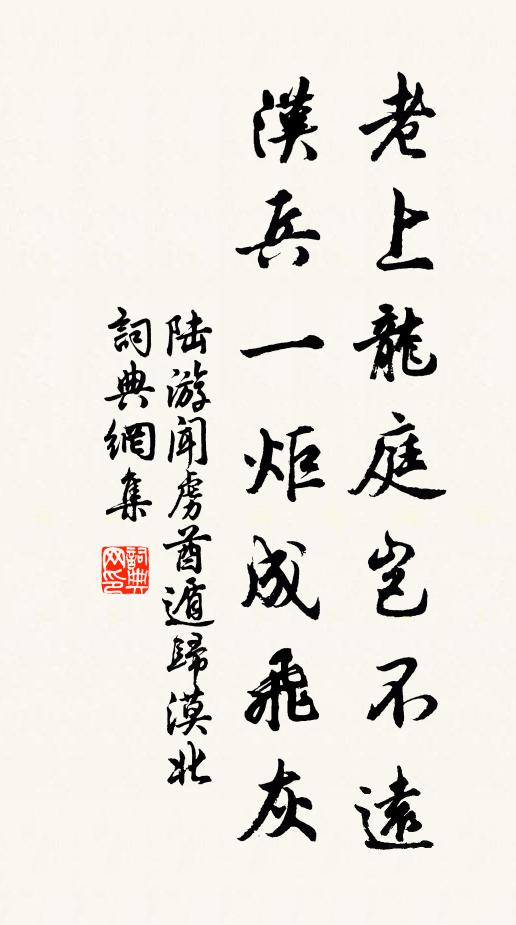 老上龍庭豈不遠
漢兵一炬成飛灰
陆游闻虜酋遁歸漠北
詞典網集
詞典網印